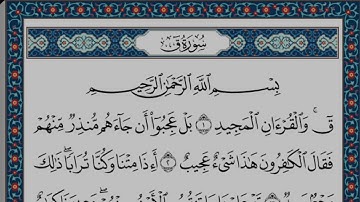 سُورَةُ قٓ
بِسۡمِ ٱللَّهِ ٱلرَّحۡمَٰنِ ٱلرَّحِيمِ
قٓۚ وَٱلۡقُرۡءَانِ ٱلۡمَجِيدِ ١ بَلۡ عَجِبُوٓاْ أَن جَآءَهُم مُّنذِرٞ مِّنۡهُمۡ
فَقَالَ ٱلۡكَٰفِرُونَ هَٰذَا شَيۡءٌ عَجِيبٌ ٢ أَءِذَا مِتۡنَا وَكُنَّا تُرَابٗاۖ ذَٰلِكَ